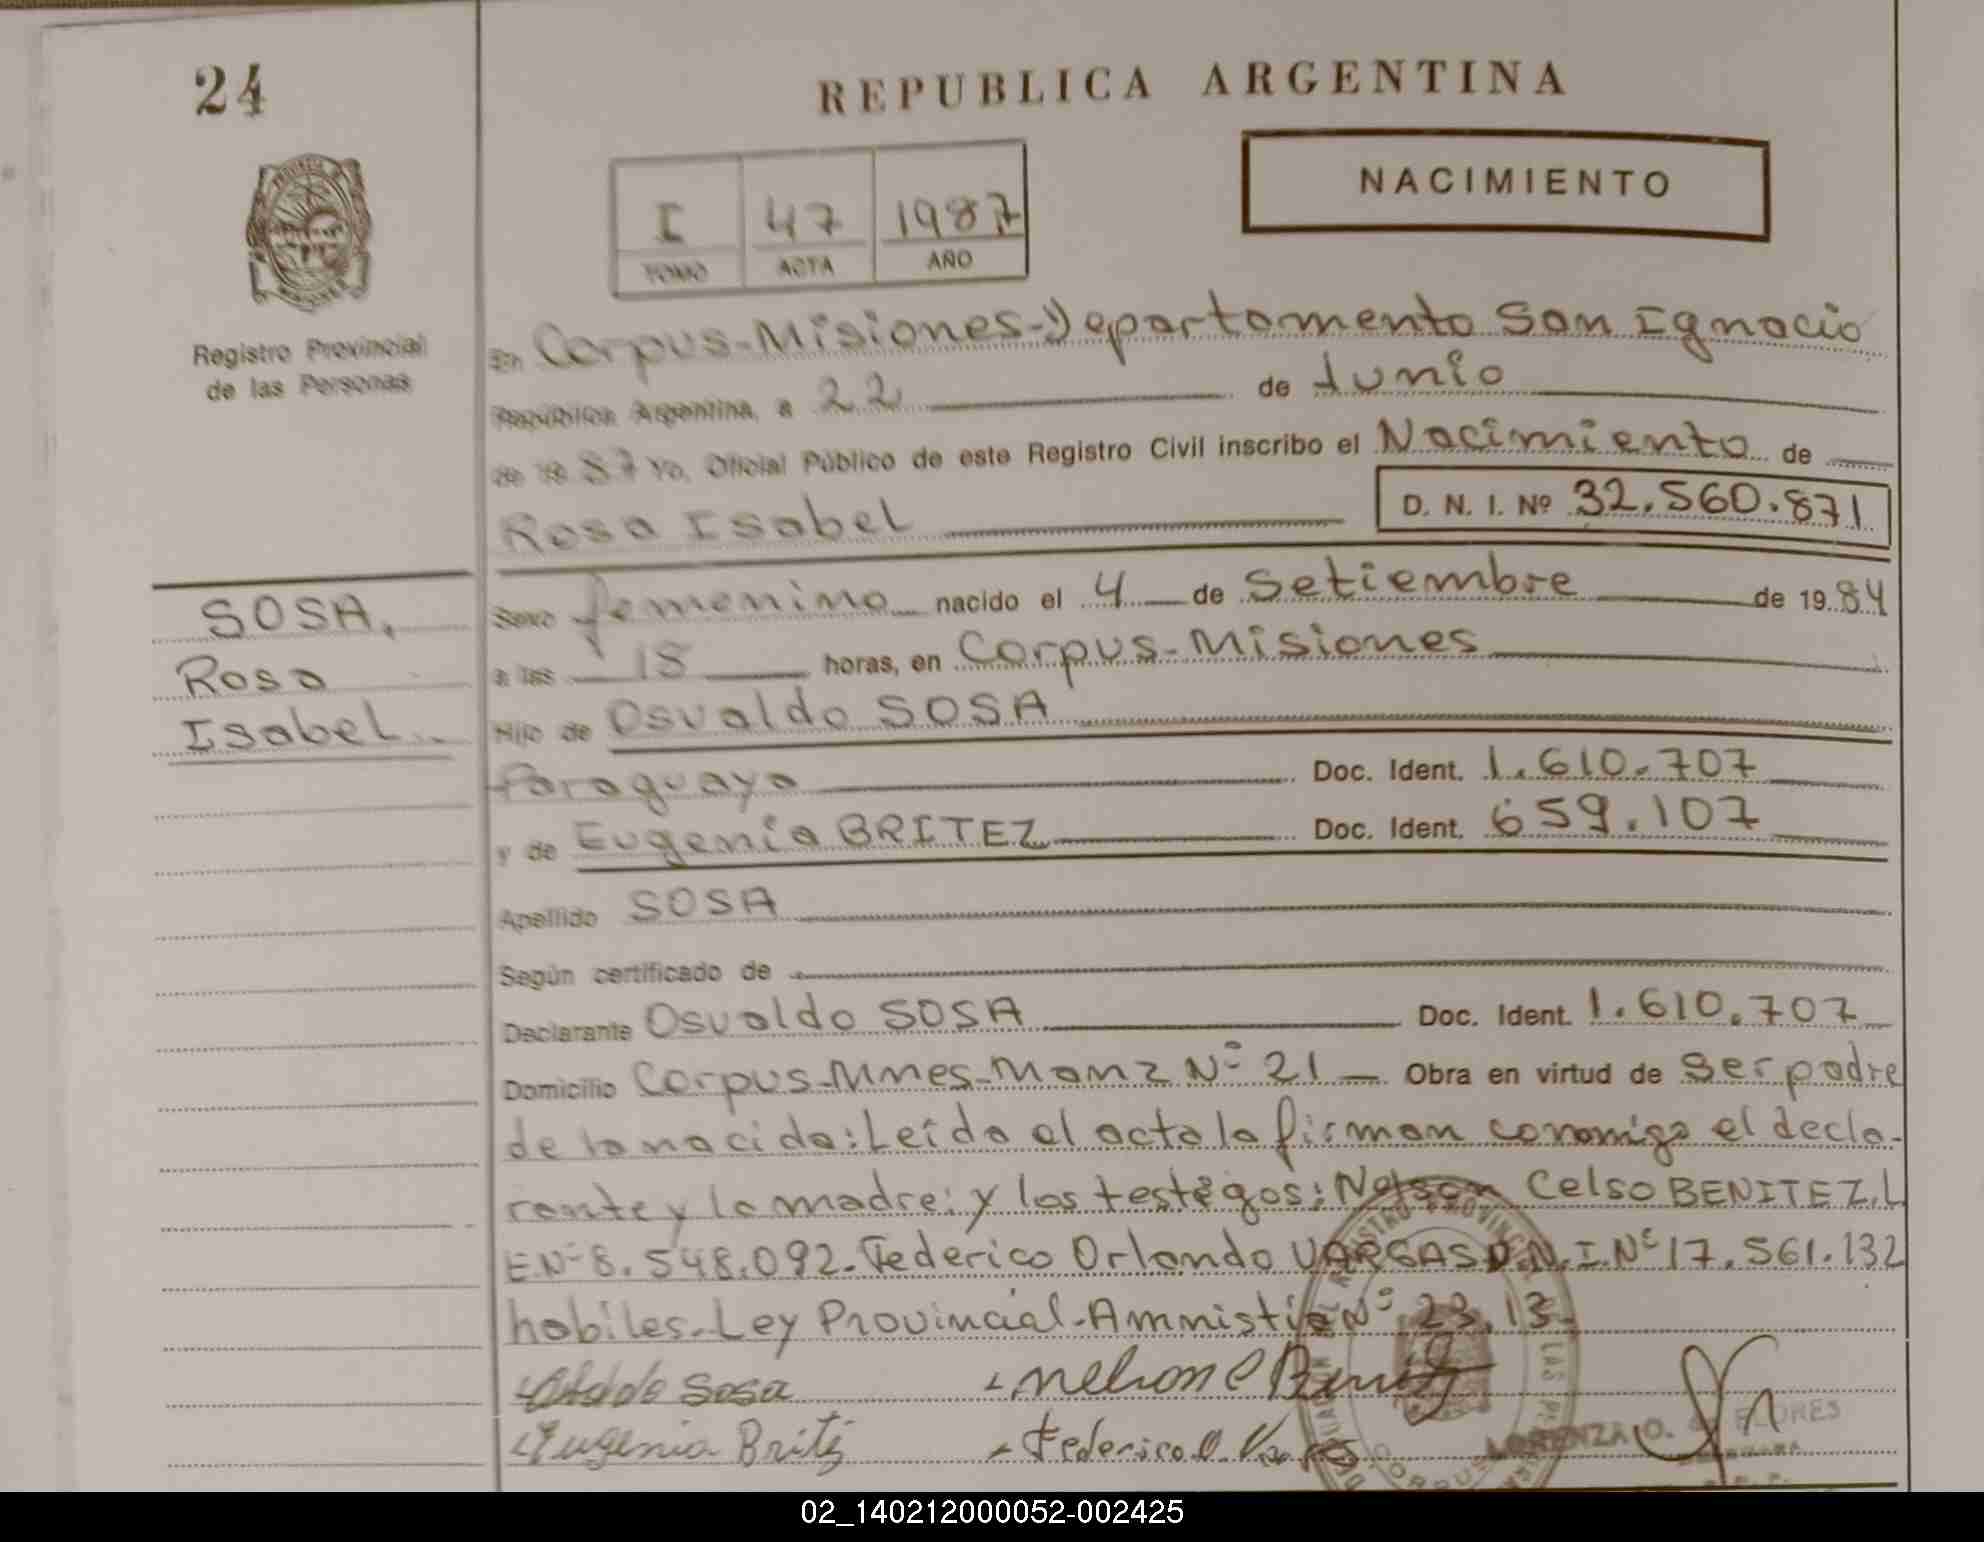 24
REPUBLICA ARGENTINA
I 47 1987
TOMO ACTA AÑO
NACIMIENTO
Registro Provincial
de las Personas
En Corpus-Misiones-Departamento San Ignacio
República Argentina, a 22 de Junio
de 19 87 Yo, Oficial Público de este Registro Civil inscribo el Nacimiento de
Rosa Isabel D. N. I. Nº 32.560.871
SOSA,
Rosa
Isabel
Sexo femenino nacido el 4 de Setiembre de 19 84
a las 18 horas, en Corpus-Misiones
Hijo de Osvaldo SOSA
Paraguaya Doc. Ident. 1.610.707
y de Eugenia BRITEZ Doc. Ident. 659.107
Apellido SOSA
Según certificado de
Declarante Osvaldo SOSA Doc. Ident. 1.610.707
Domicilio Corpus-Mnes-Manz Nº 21 Obra en virtud de Ser padre
de la nacida: Leída el acta la firman conmigo el decla-
rante y la madre: y los testigos: Nelson Celso BENITEZ.L
E.Nº 8.548.092-Federico Orlando VARGAS D.N.I.Nº 17.561.132
habiles-Ley Provincial-Amnistia Nº 23.13-
Sosa Nelson C Benitez
Eugenia Britez Federico O. Vargas
REGISTRO PROVINCIAL DE LAS PERSONAS
CORPUS
LORENZA O. DE FLORES